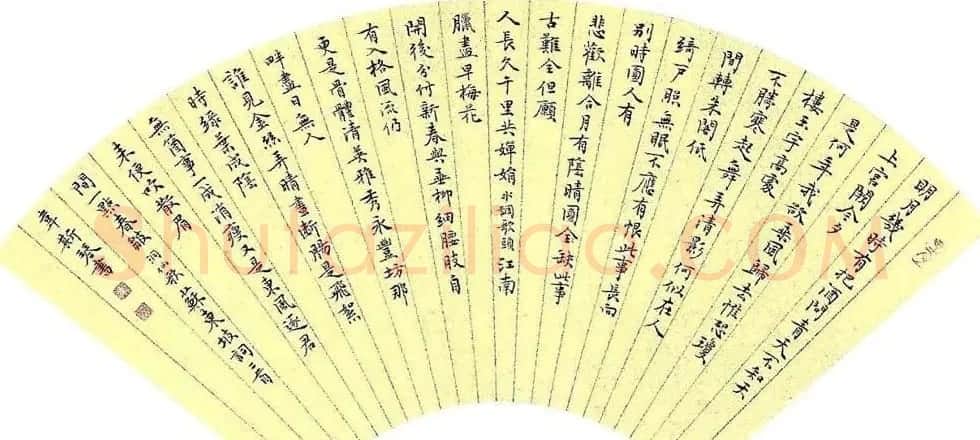 明月幾時有把酒問青天不知天
上宮闕今夕
是何年我欲乘風歸去惟恐瓊
樓玉宇高處
不勝寒起舞弄清影何似在人
間轉朱閣低
綺戶照無眠不應有恨此事長向
別時圓人有
悲歡離合月有陰晴圓全缺此事
古難全但願
人長久千里共嬋娟 水調歌頭 江南
臘盡早梅花
開後分付新春與垂柳細腰肢自
有入格風流仍
更是骨體清英雅秀永豐坊那
畔盡日無人
誰見金絲弄晴晝斷腸是飛絮
時綠葉成陰
無箇事一成消瘦又是東風逐君
來便吹散眉
間一點春皺 洞仙歌 蘇東坡詞二首
韋斯琴書